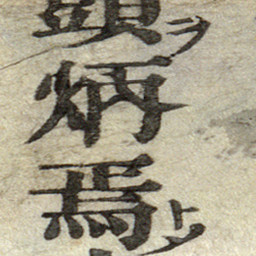 頭ヲ炳焉ト